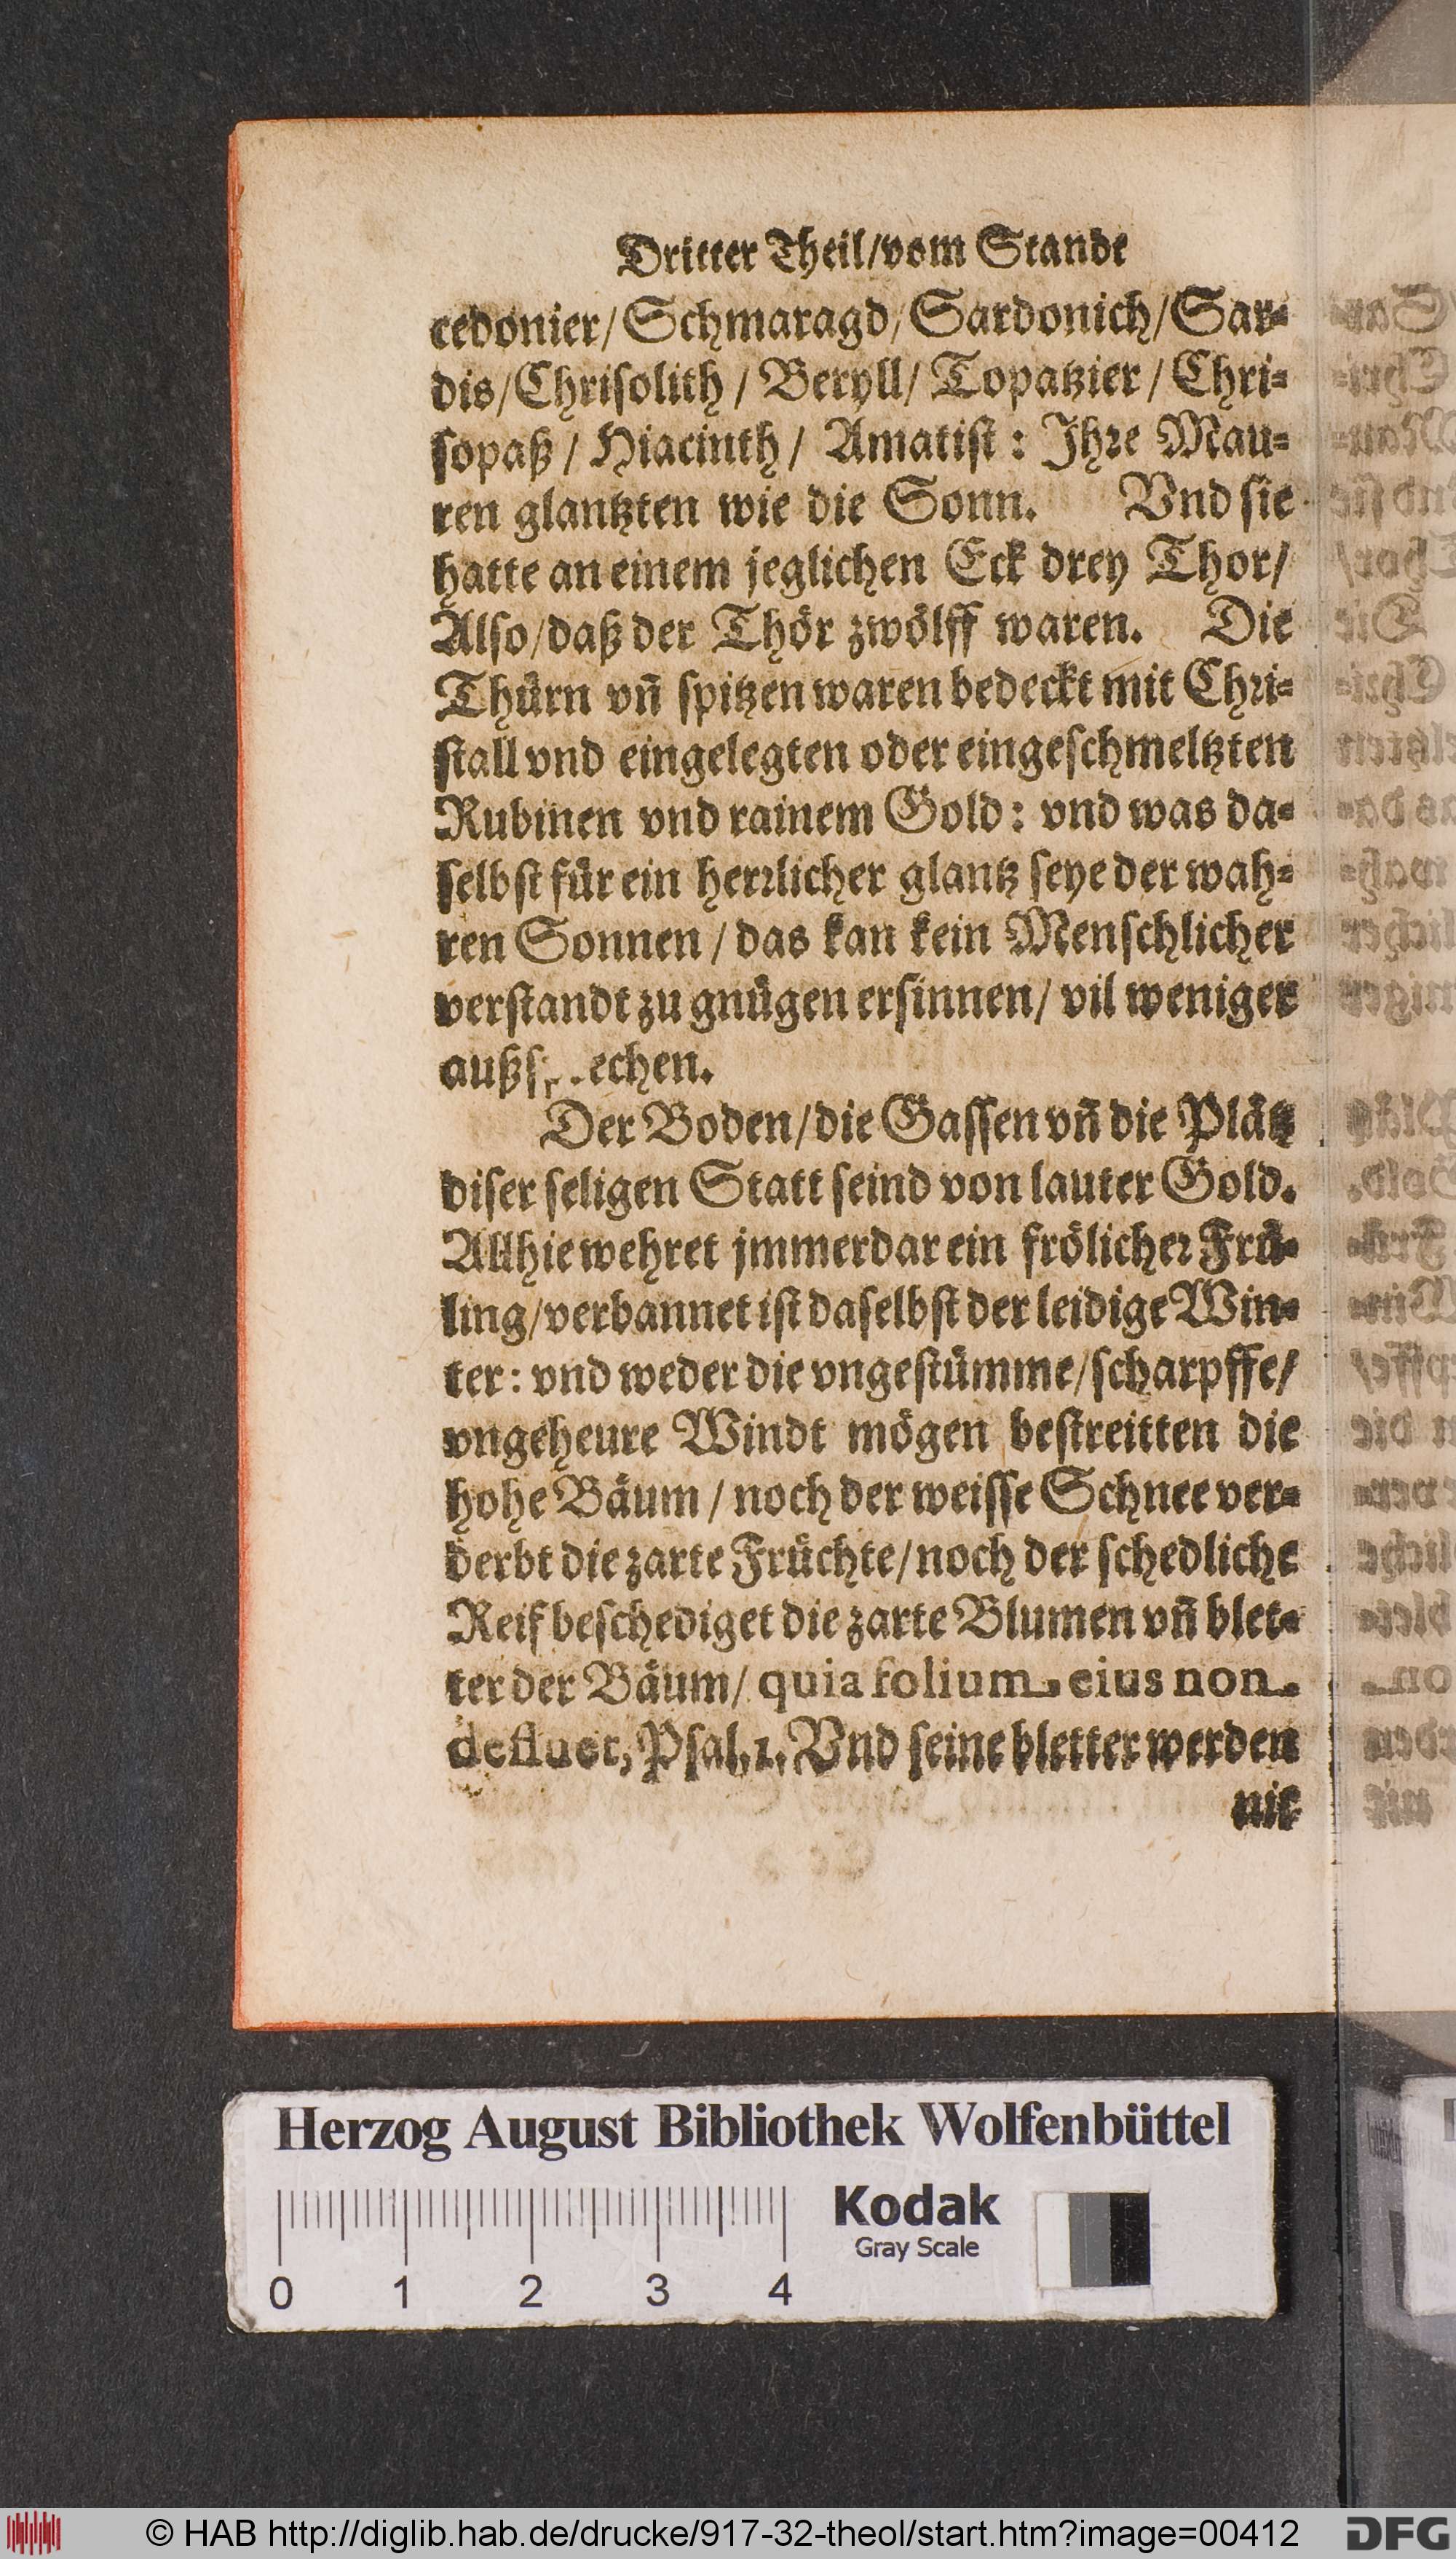 Dritter Theil/vom Stande
cedonier/Schmaragd/Sardonich/Sar-
dis/Chrisolith/Beryll/Topatzier/Chri-
sopaß/Hiacinth/Amatist: Ihre Mau-
ren glantzten wie die Sonn. Vnd sie
hatte an einem jeglichen Eck drey Thor/
Also/daß der Thör zwölff waren. Die
Thürn vñ spitzen waren bedeckt mit Chri-
stall vnd eingelegten oder eingeschmeltzten
Rubinen vnd rainem Gold: vnd was da-
selbst für ein herrlicher glantz seye der wah-
ren Sonnen/das kan kein Menschlicher
verstandt zu gnügen ersinnen/vil weniger
Der Boden/die Gassen vñ die Plätz
diser seligen Statt seind von lauter Gold.
Allhie wehret jmmerdar ein frölicher Frü-
ling/verbannet ist daselbst der leidige Win-
ter: vnd weder die vngestümme/scharpffe/
vngeheure Windt mögen bestreitten die
hohe Bäum/noch der weisse Schnee ver-
derbt die zarte Früchte/noch der schedliche
Reif beschediget die zarte Blumen vñ blet-
ter der Bäum/quia folium eius non
defluet, Psal. 1. Vnd seine bletter werden
nit
Herzog August Bibliothek Wolfenbüttel
Kodak
Gray Scale
0 1 2 3 4
© HAB http://diglib.hab.de/drucke/917-32-theol/start.htm?image=00412
DFG